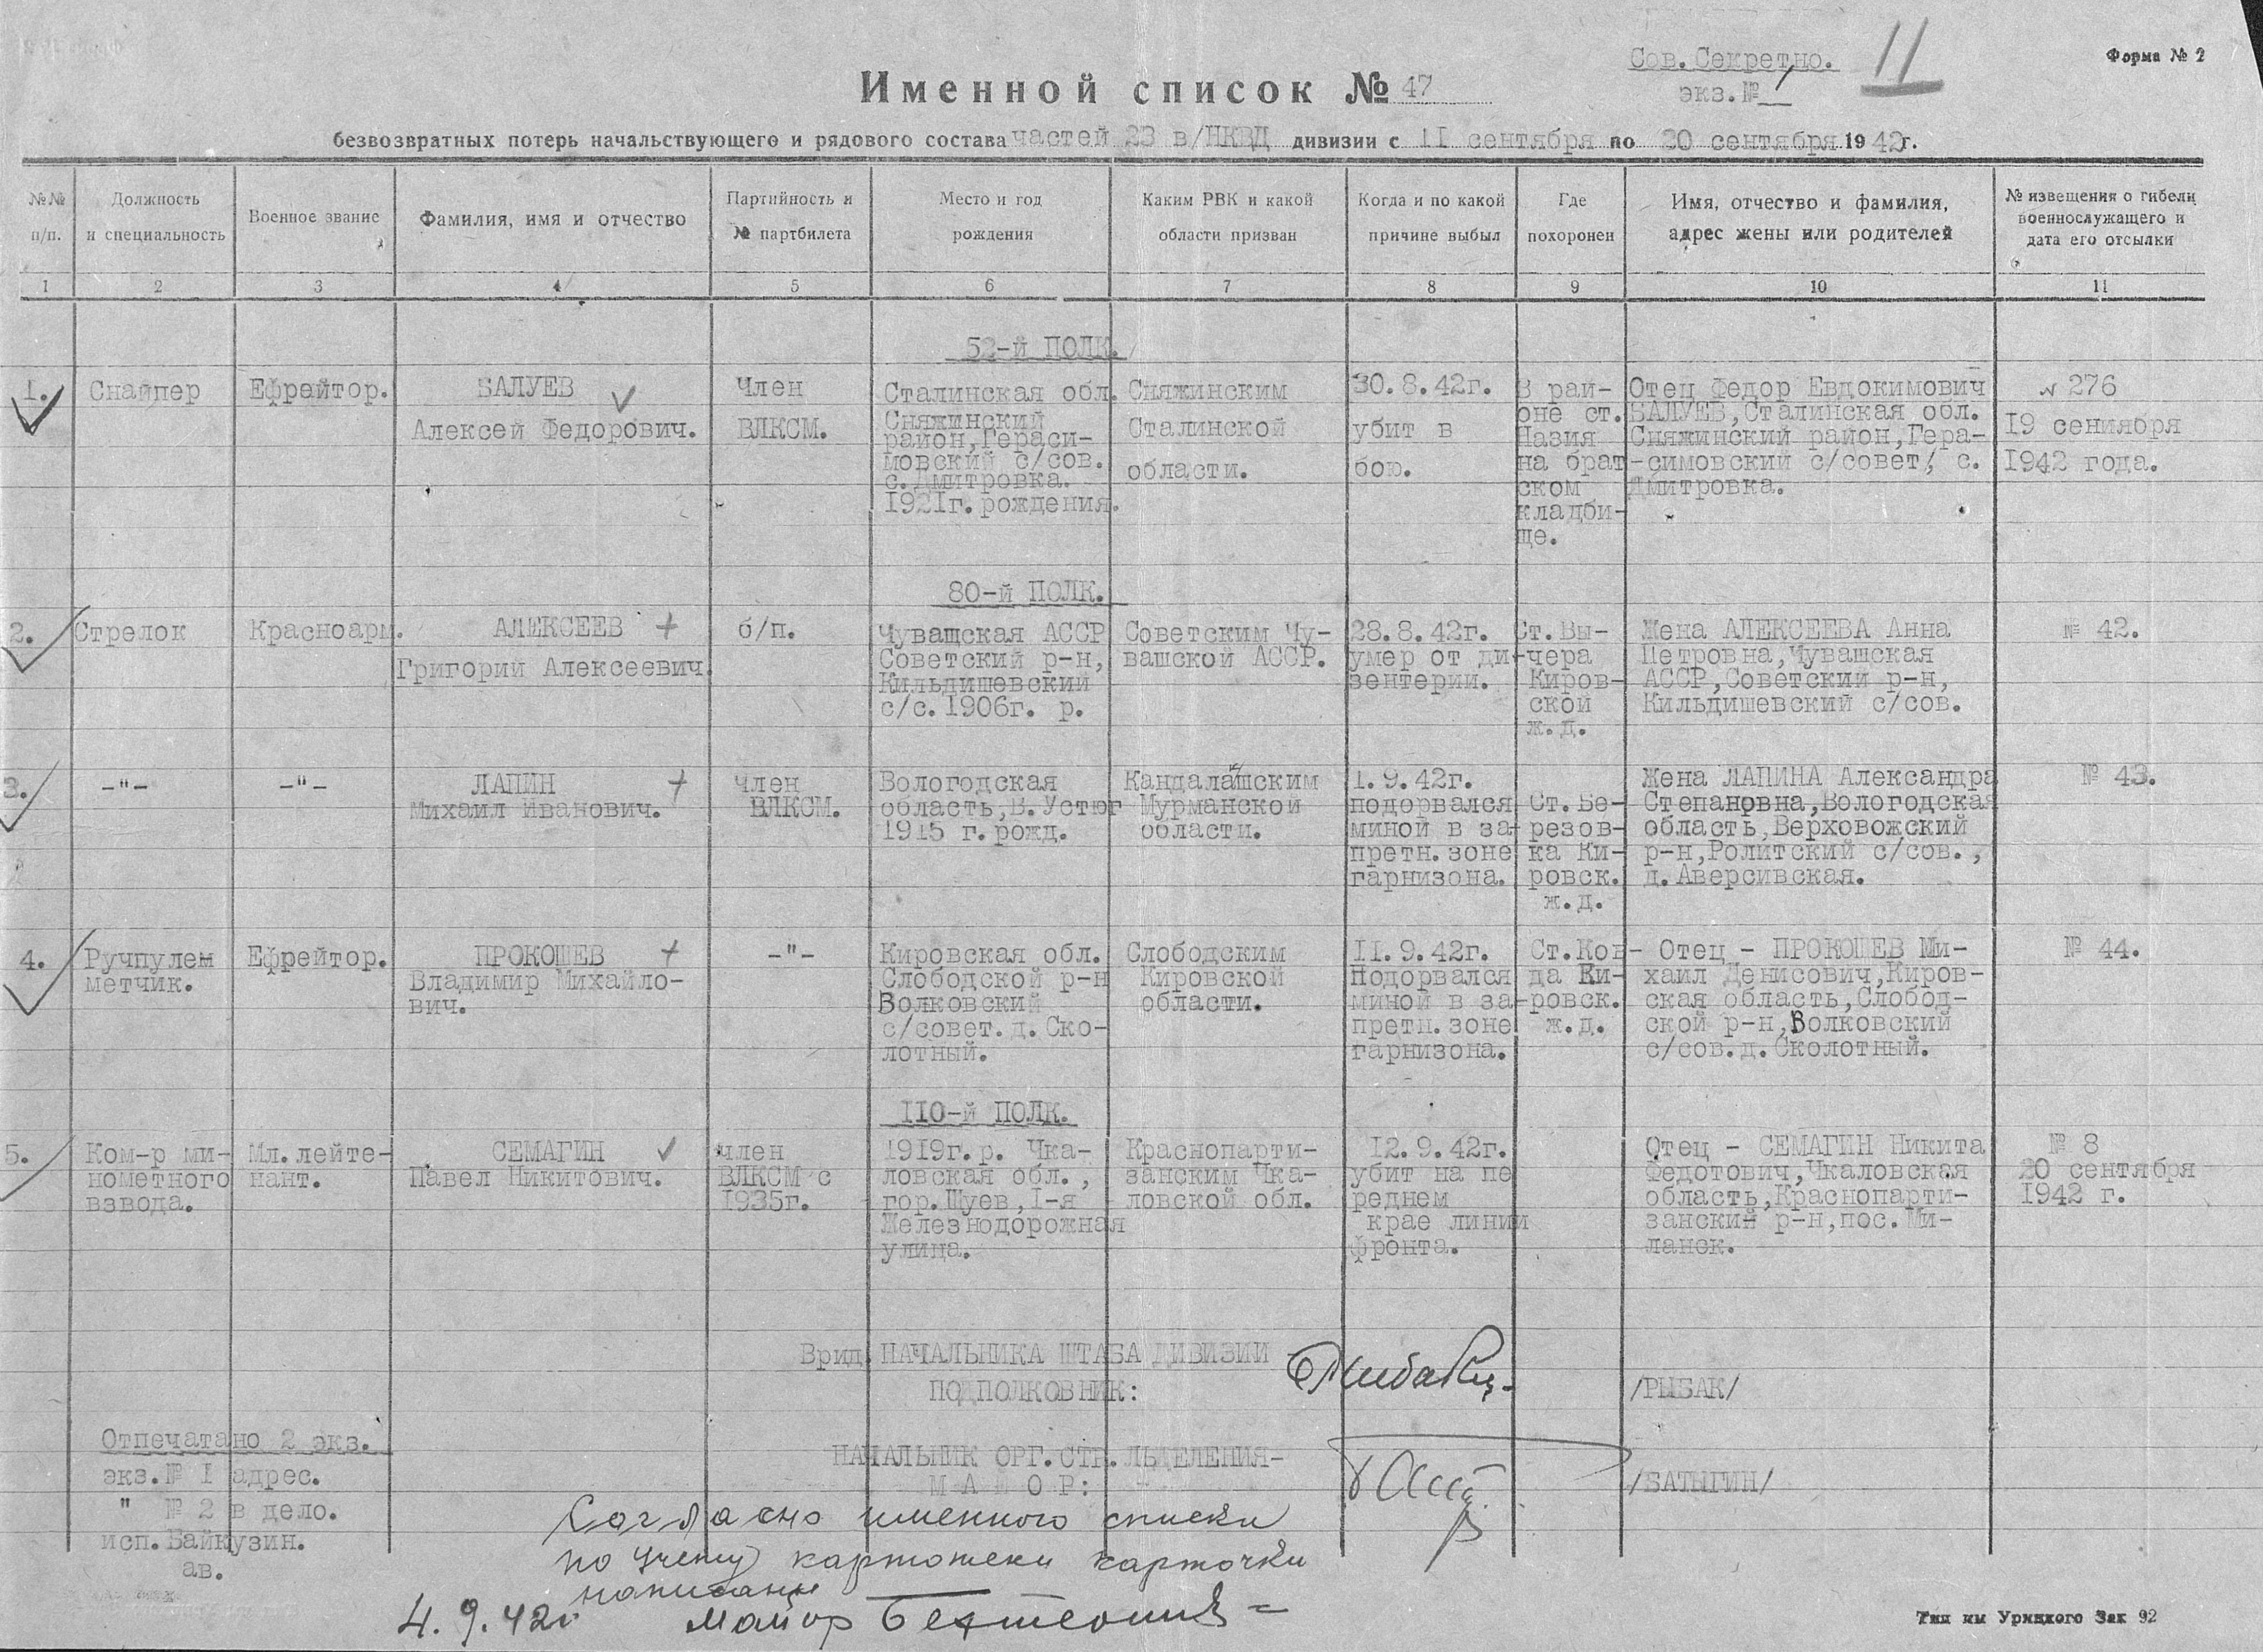 Сов.Секретно.
экз.№ 1
11
Форма № 2
Именной список № 47
безвозвратных потерь начальствующего и рядового состава частей 23 в/НКВД дивизии с 11 сентября по 20 сентября 1942г.
№№ п/п.
Должность и специальность
Военное звание
Фамилия, имя и отчество
Партийность и № партбилета
Место и год рождения
Каким РВК и какой области призван
Когда и по какой причине выбыл
Где похоронен
Имя, отчество и фамилия, адрес жены или родителей
№ извещения о гибели военнослужащего и дата его отсылки
1 2 3 4 5 6 7 8 9 10 11
52-й ПОЛК.
1.
Снайпер
Ефрейтор.
БАЛУЕВ
Алексей Федорович.
Член
ВЛКСМ.
Сталинская обл.
Сняжинский
район,Гераси-
мовский с/сов.
с.Дмитровка.
1921г.рождения.
Сняжинским
Сталинской
области.
30.8.42г.
убит в
бою.
В рай-
оне ст.
Назия
на брат
ском
кладби-
ще.
Отец Федор Евдокимович
БАЛУЕВ,Сталинская обл.
Сняжинский район,Гера-
-симовский с/совет, с.
Дмитровка.
№ 276
19 сентября
1942 года.
80-й ПОЛК.
2.
Стрелок
Красноарм.
АЛЕКСЕЕВ
Григорий Алексеевич.
б/п.
Чувашская АССР
Советский р-н,
Кильдишевский
с/с.1906г. р.
Советским Чу-
вашской АССР.
28.8.42г.
умер от ди-
зентерии.
Ст.Вы-
чера
Киров-
ской
ж.д.
Жена АЛЕКСЕЕВА Анна
Петровна,Чувашская
АССР,Советский р-н,
Кильдишевский с/сов.
№ 42.
3.
-"-
-"-
ЛАПИН
Михаил Иванович.
член
ВЛКСМ.
Вологодская
область,В.Устюг
1915 г.рожд.
Кандалашским
Мурманской
области.
1.9.42г.
подорвался
миной в за-
претн.зоне
гарнизона.
Ст.Бе-
резов-
ка Ки-
ровск.
ж.д.
Жена ЛАПИНА Александра
Степановна,Вологодская
область,Верховожский
р-н,Ролитский с/сов.,
д.Аверсивская.
№ 43.
4.
Ручпулем
метчик.
Ефрейтор.
ПРОКОШЕВ
Владимир Михайло-
вич.
-"-
Кировская обл.
Слободской р-н
Волковский
с/совет.д.Ско-
лотный.
Слободским
Кировской
области.
11.9.42г.
Подорвался
миной в за-
претн.зоне
гарнизона.
Ст.Ков-
да Ки-
ровск.
ж.д.
Отец - ПРОКОШЕВ Ми-
хаил Денисович,Киров-
ская область,Слобод-
ской р-н,Волковский
с/сов.д.Сколотный.
№ 44.
110-й ПОЛК.
5.
Ком-р ми-
нометного
взвода.
Мл.лейте-
нант.
СЕМАГИН
Павел Никитович.
член
ВЛКСМ с
1935г.
1919г.р. Чка-
ловская обл.,
гор.Щуев,1-я
Железнодорожная
улица.
Краснопарти-
занским Чка-
ловской обл.
12.9.42г.
убит на пе
реднем
крае линии
фронта.
Отец - СЕМАГИН Никита
Федотович,Чкаловская
область,Краснопарти-
занский р-н,пос.Ми-
ланск.
№ 8
20 сентября
1942 г.
Врид НАЧАЛЬНИКА ШТАБА ДИВИЗИИ
ПОДПОЛКОВНИК:
/РЫБАК/
НАЧАЛЬНИК ОРГ.СТР. ОТДЕЛЕНИЯ-
М А Й О Р:
/БАТЫГИН/
Отпечатано 2 экз.
экз.№ 1 адрес.
" № 2 в дело.
исп.Байкузин.
ав.
Согласно именного списки
по учету картотеки карточки
написаны
4.9.42г Майор
Тип им Урицкого Зак 92